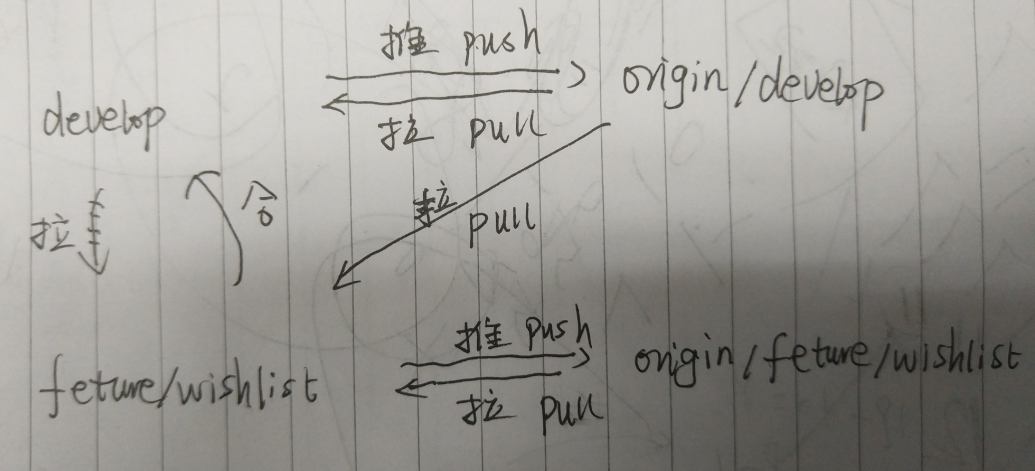 推 push
develop
origin/develop
拉 pull
拉
合
拉
pull
推 push
feture/wishlist
origin/feture/wishlist
拉 pull